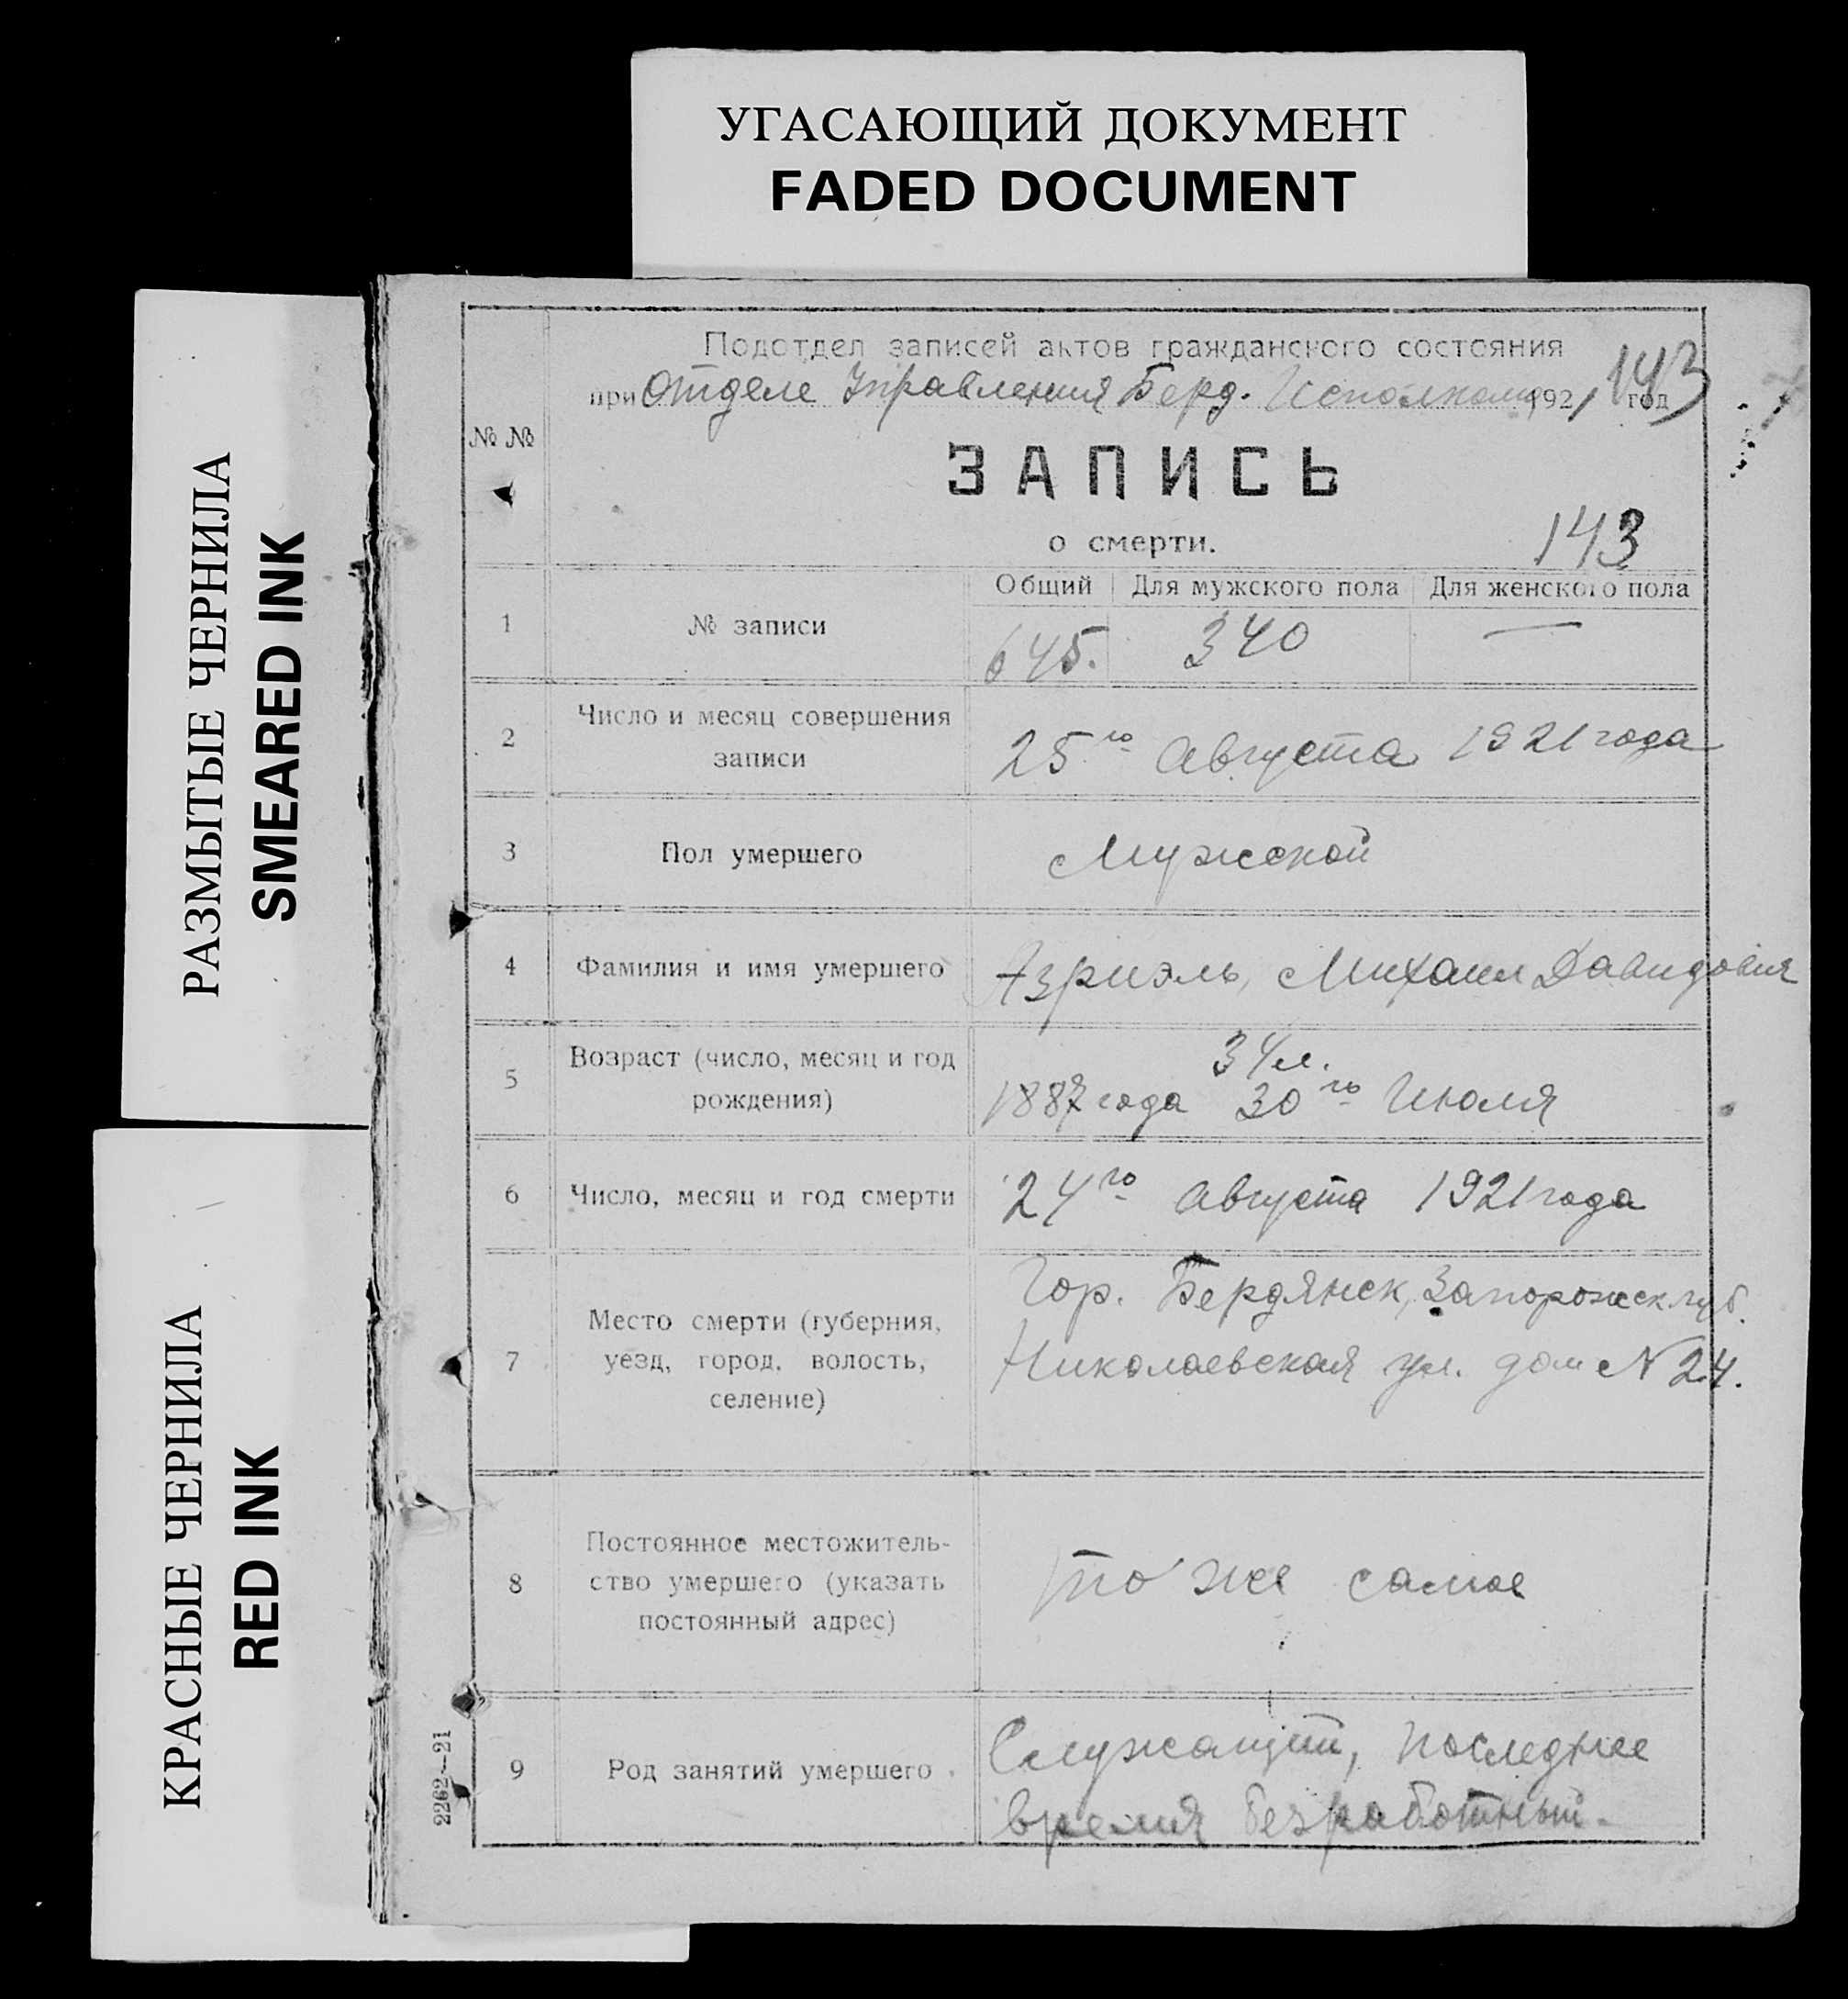 УГАСАЮЩИЙ ДОКУМЕНТ
FADED DOCUMENT
РАЗМЫТЫЕ ЧЕРНИЛА
SMEARED INK
КРАСНЫЕ ЧЕРНИЛА
RED INK
Подотдел записей актов гражданского состояния
143
при Отделе Управления Берд. Исполкома 1921 год
№ №
ЗАПИСЬ
о смерти.
143
Общий Для мужского пола Для женского пола
1 № записи 645. 340 —
2 Число и месяц совершения
записи
25го Августа 1921 года
3 Пол умершего Мужской
4 Фамилия и имя умершего Азриэль, Михаил Давидович
5 Возраст (число, месяц и год
рождения)
34 л.
1887 года 30го Июля
6 Число, месяц и год смерти 24го Августа 1921 года
7 Место смерти (губерния,
уезд, город, волость,
селение)
Гор. Бердянск, Запорожск. губ.
Николаевская ул. дом № 24.
8 Постоянное местожитель-
ство умершего (указать
постоянный адрес)
то же самое
9 Род занятий умершего
Служащий, последнее
время безработный.
2262—21